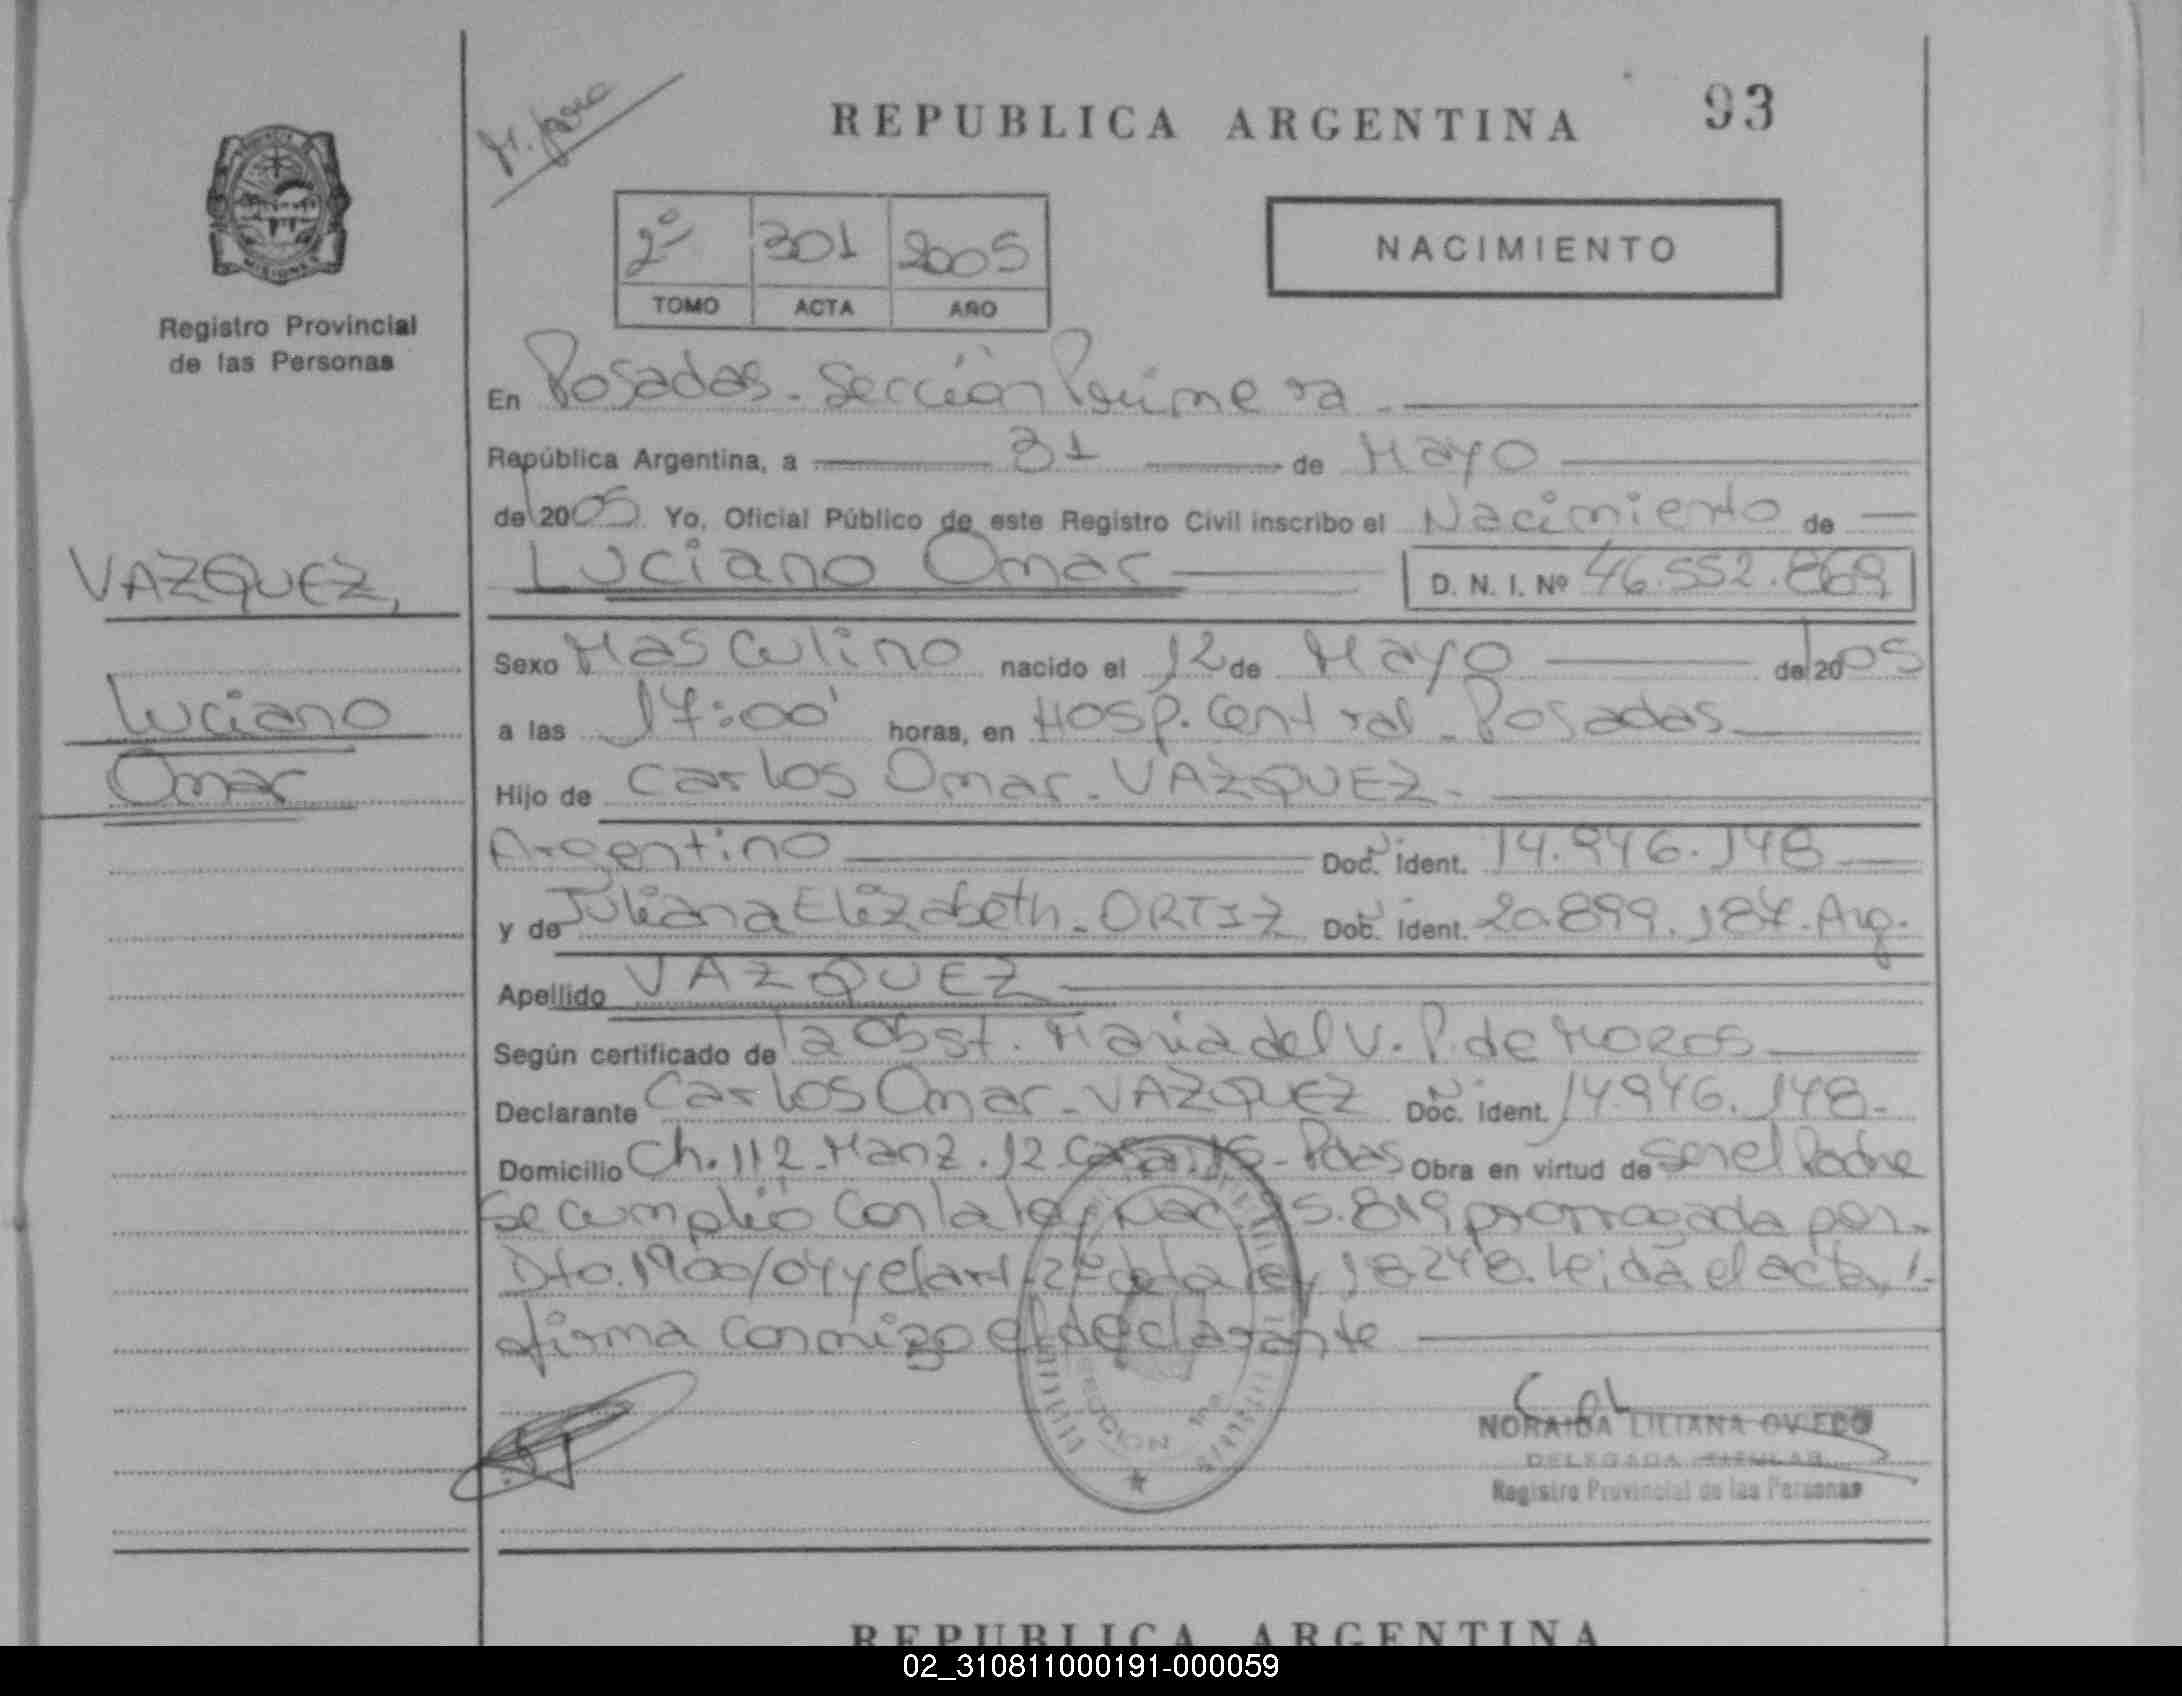 REPUBLICA ARGENTINA
93
MISIONES
Registro Provincial
de las Personas
2º 301 2005
TOMO ACTA AÑO
NACIMIENTO
En Posadas - Sección Primera -
República Argentina, a 31 de Mayo
de 2005 Yo, Oficial Público de este Registro Civil inscribo el Nacimiento de
VAZQUEZ,
Luciano
Omar
Luciano Omar D. N. I. Nº 46.552.869
Sexo Masculino nacido el 12 de Mayo de 2005
a las 17:00' horas, en Hosp. Central - Posadas
Hijo de Carlos Omar - VAZQUEZ -
Argentino Doc. Ident. 14.946.148
y de Juliana Elizabeth - ORTIZ Doc. Ident. 20.899.187 - Arg.
Apellido VAZQUEZ
Según certificado de la Obst. Maria del V. P. de MOROS
Declarante Carlos Omar - VAZQUEZ Doc. Ident. 14.946.148 -
Domicilio Ch. 112 - Manz. 12 Casa - Pdas Obra en virtud de ser el Padre
Se cumplió con la ley Nac. 25.819 prorrogada por
Dto. 1900/04 y el art. 2º de la ley 18.248. Leida el acta,
firma conmigo el declarante
NORAIDA LILIANA OVIEDO
DELEGADA TITULAR
Registro Provincial de las Personas
REPUBLICA ARGENTINA
02_310811000191-000059